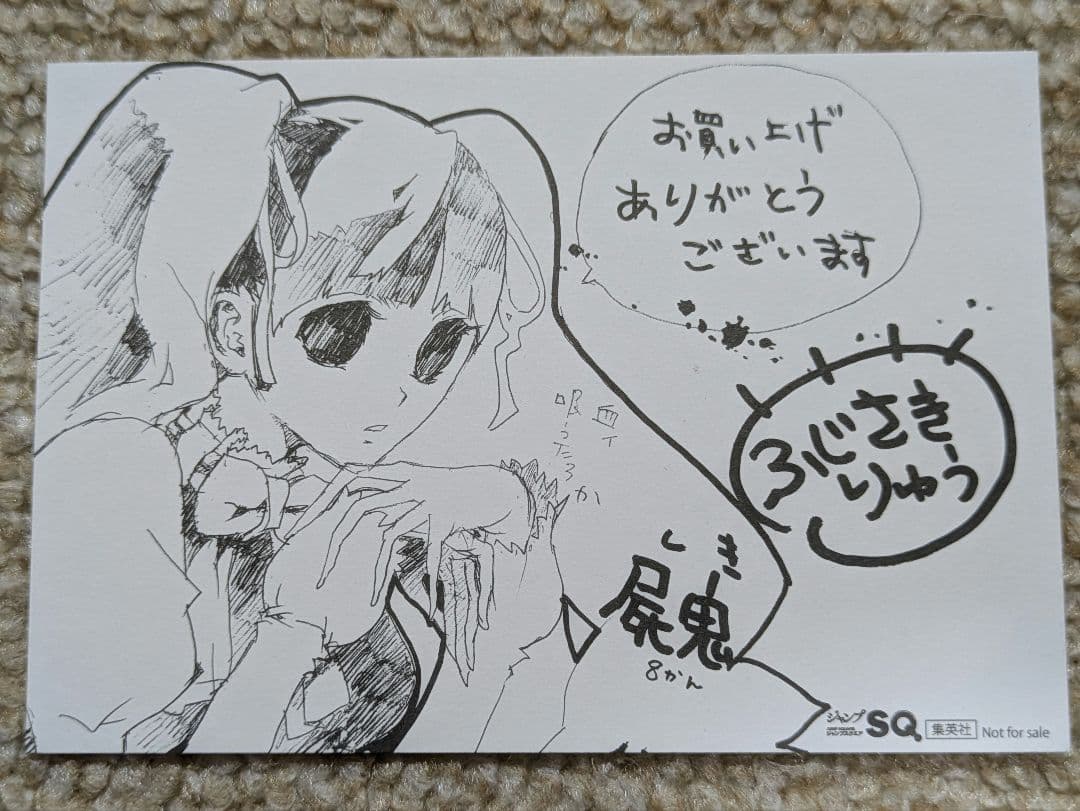 お買い上げ
ありがとう
ございます
ふじさき
りゅう
血ィ
吸ったろか
しき
屍鬼
8かん
ジャンプ
SQ.
ジャンプスクエア
集英社
Not for sale